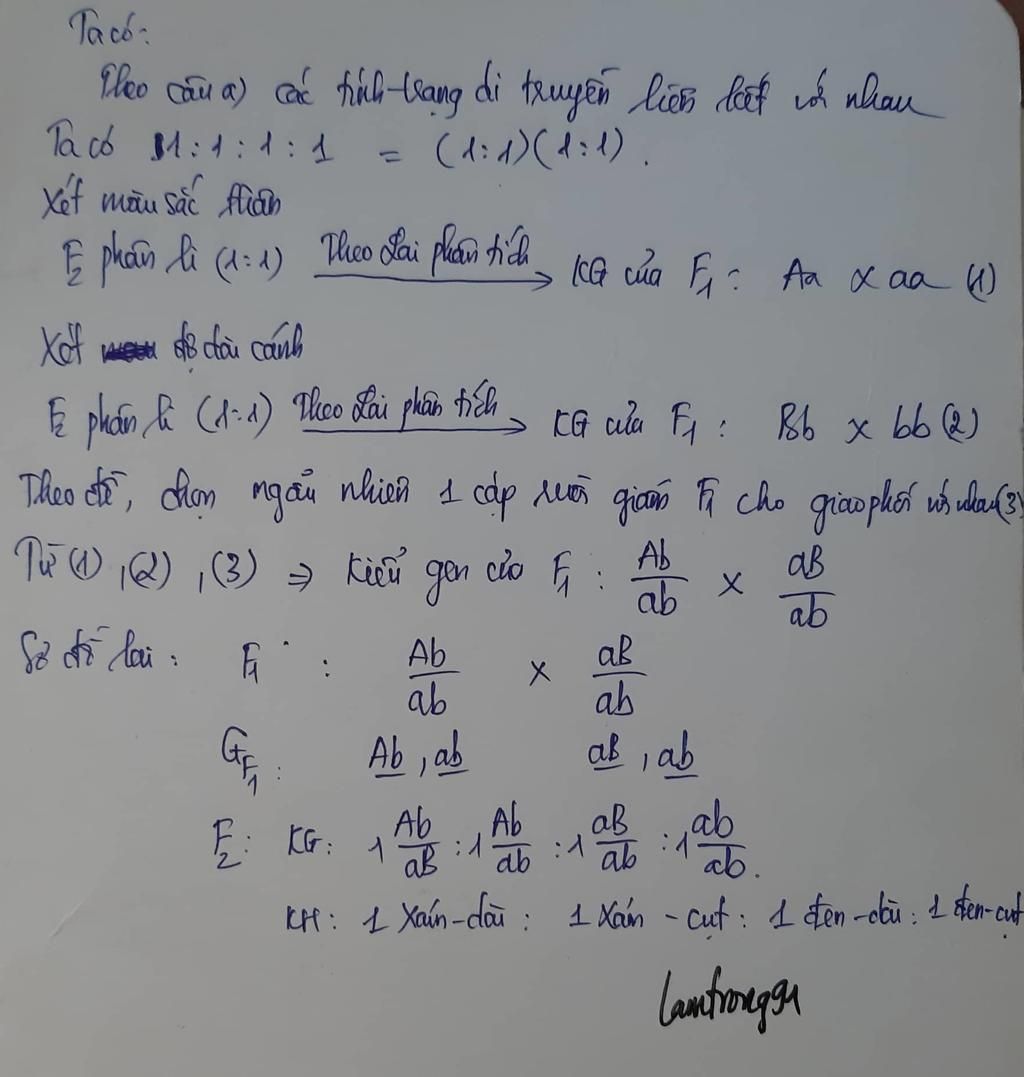 Ta có:
Theo câu a) các tính trạng di truyền liên kết với nhau
Ta có 1:1:1:1 = (1:1)(1:1).
Xét màu sắc thân
F2 phân li (1:1) Theo lai phân tích → KG của F1: Aa x aa (1)
Xét độ dài cánh
F2 phân li (1:1) Theo lai phân tích → KG của F1: Bb x bb (2)
Theo đề, chọn ngẫu nhiên 1 cặp ruồi giấm F1 cho giao phối với nhau (3)
Từ (1), (2), (3) => Kiểu gen của F1: Ab/ab x aB/ab
Sơ đồ lai: F1: Ab/ab x aB/ab
GF1: Ab, ab aB, ab
F2: KG: 1 Ab/aB : 1 Ab/ab : 1 aB/ab : 1 ab/ab.
KH: 1 Xám-dài: 1 Xám-cụt: 1 đen-dài: 1 đen-cụt